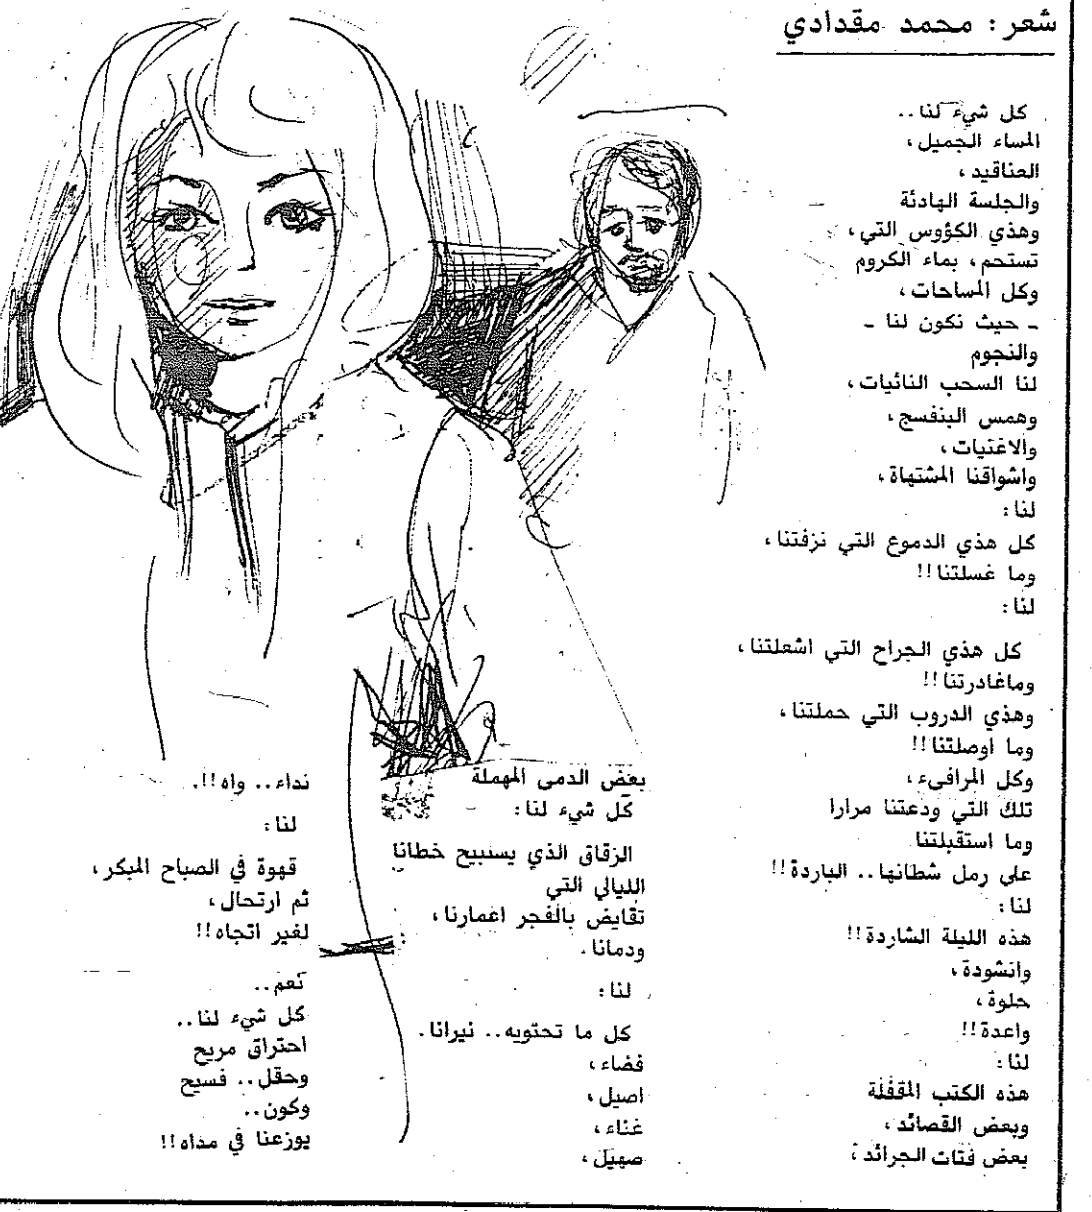 شعر : محمد مقدادي
كل شيء لنا ..
المساء الجميل ،
العناقيد ،
والجلسة الهادئة
وهذي الكؤوس التي ،
تستحم ، بماء الكروم
وكل المساحات ،
ـ حيث نكون لنا ـ
والنجوم
لنا السحب النائيات ،
وهمس البنفسج ،
والاغنيات ،
واشواقنا المشتهاة ،
لنا :
كل هذي الدموع التي نزفتنا ،
وما غسلتنا !!
لنا :
كل هذي الجراح التي اشعلتنا ،
وماغادرتنا !!
وهذي الدروب التي حملتنا ،
وما اوصلتنا !!
وكل المرافىء ،
تلك التي ودعتنا مرارا
وما استقبلتنا
على رمل شطانها .. الباردة !!
لنا :
هذه الليلة الشاردة !!
وانشودة ،
حلوة ،
واعدة !!
لنا :
هذه الكتب المقفلة
وبعض القصائد ،
بعض فتات الجرائد ،
بعض الدمى المهملة
كل شيء لنا :
الزقاق الذي يستبيح خطانا
الليالي التي
تقايض بالفجر اعمارنا ،
ودمانا .
لنا :
كل ما تحتويه .. نيرانا .
فضاء ،
اصيل ،
غناء ،
صهيل ،
نداء .. واه !!.
لنا :
قهوة في الصباح المبكر ،
ثم ارتحال ،
لغير اتجاه !!
نعم ..
كل شيء لنا ..
احتراق مريح
وحقل .. فسيح
وكون ..
يوزعنا في مداه !!